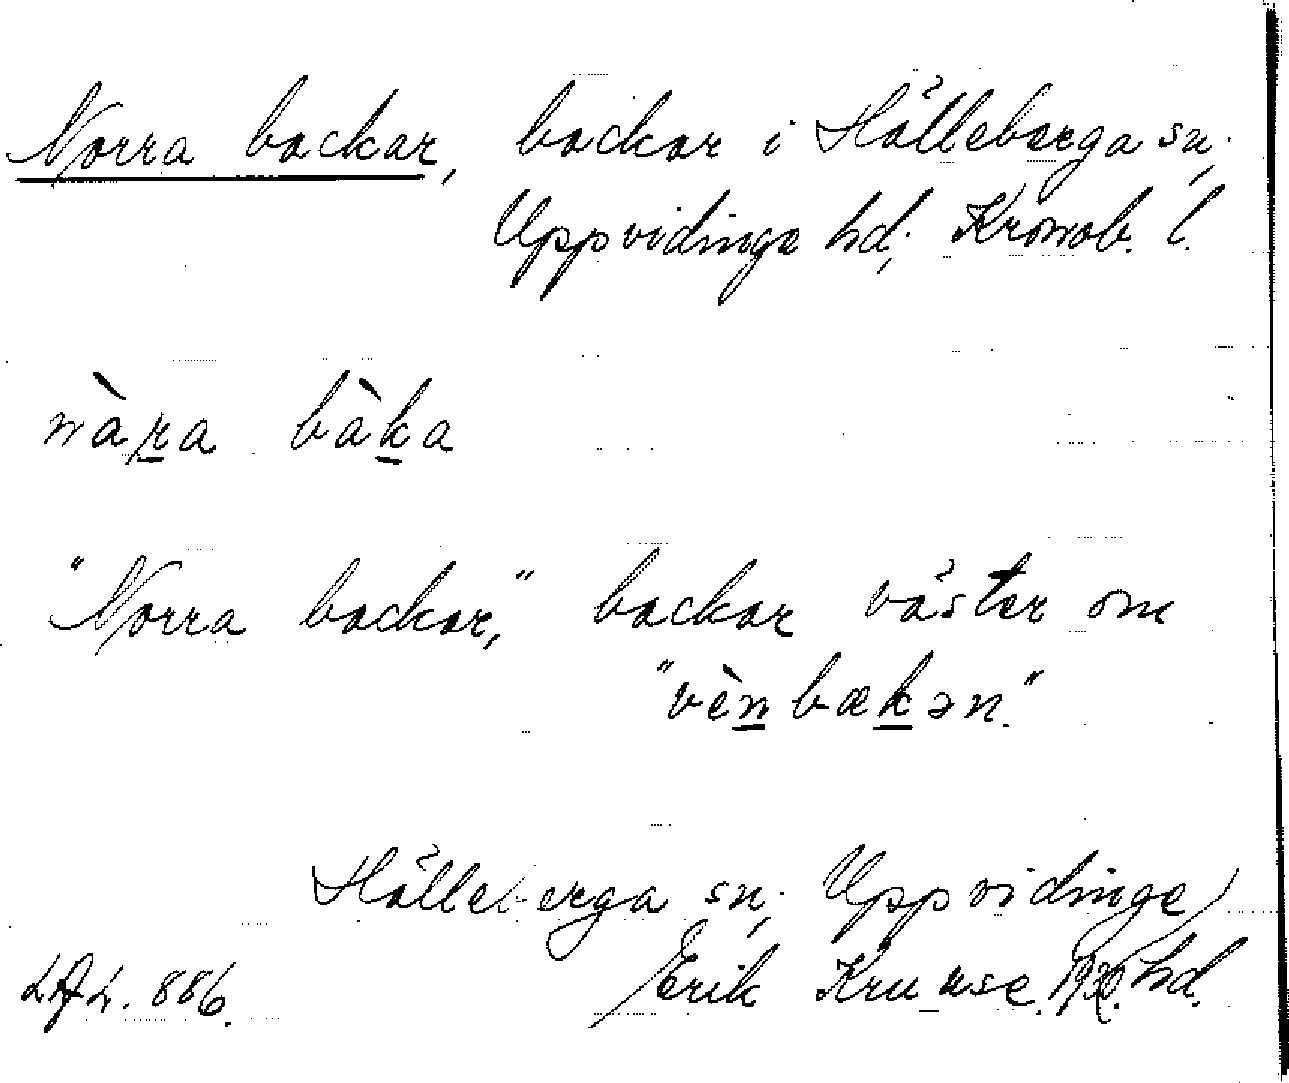 Norra backar, backar i Hälleberga sn,
Uppvidinge hd, Kronob. l.
nàra bàka
"Norra backar," backar väster om
"vènbækən."
Hälleberga sn, Uppvidinge
LAL. 886. Erik Kruuse. 1930. hd.